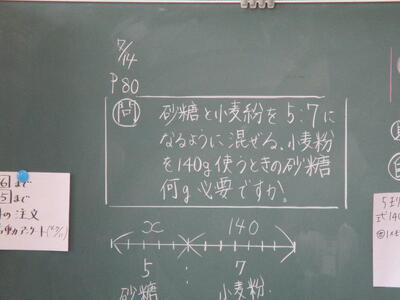 7/14
P80
問 砂糖と小麦粉を5:7に
なるように混ぜる。小麦粉
を140g使うときの砂糖
何g必要ですか。
x 140
5 : 7
砂糖 小麦粉.
6まで
5まで
の注文